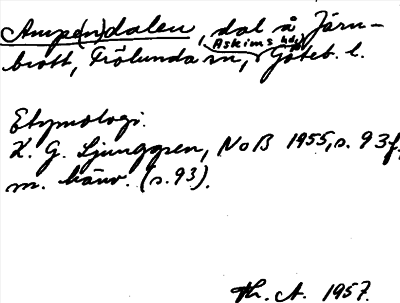 Ampe(n)dalen, dal å Järn-
brott, Frölunda sn, Askims hd, Göteb. l.
Etymologi.
K. G. Ljunggren, NoB 1955, s. 93f.
m. hänv. (s. 93).
Th. A. 1957.